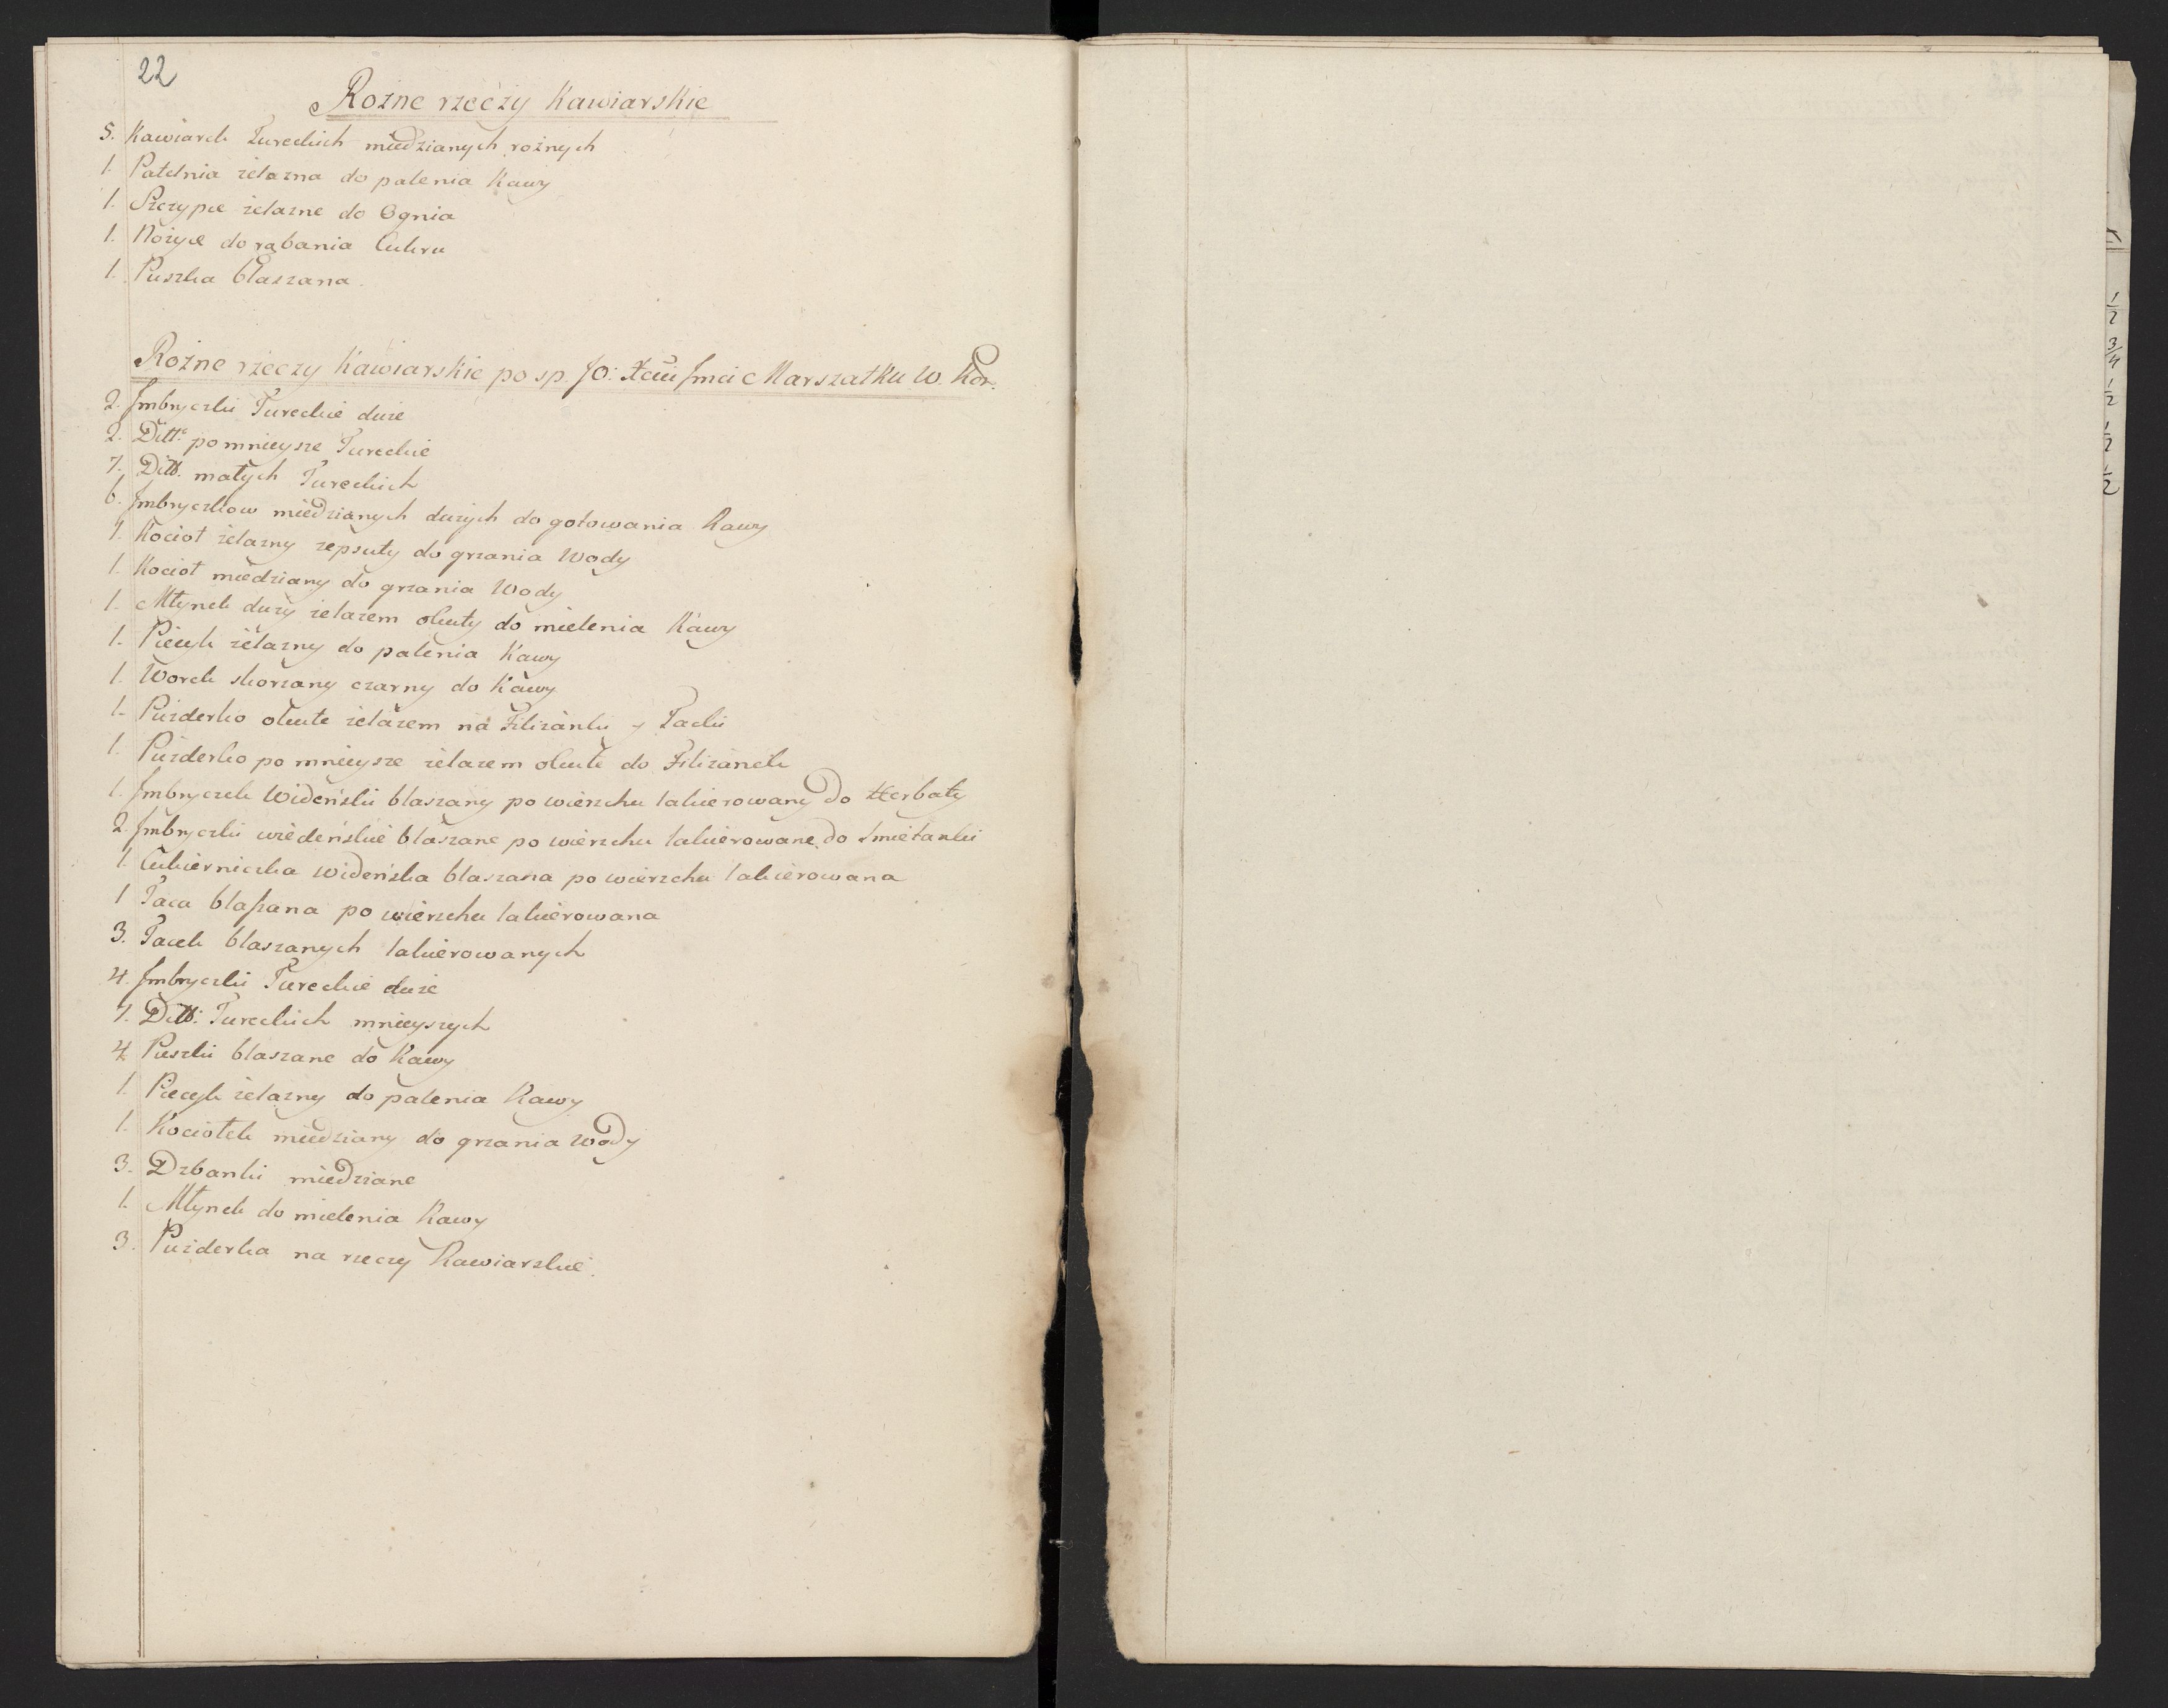 22
Rożne rzeczy Kawiarskie
5. Kawiarek Tureckich miedzianych rożnych
1. Patelnia żelazna do palenia Kawy
1. Szczypce żelazne do Ognia
1. Nożyce do rąbania Cukru
1. Puszka blaszana.
Rożne rzeczy Kawiarskie po sp. JO: Xciu Jmci Marszałku W. Kor.
2. Jmbryczki Tureckie duże
2. Ditto pomnieysze Tureckie
7. Ditto. małych Tureckich
6. Jmbryczkow miedzianych dużych do gotowania Kawy
1. Kocioł żelazny zepsuty do grzania Wody
1. Kocioł miedziany do grzania Wody
1. Młynek duży żelazem okuty do mielenia Kawy
1. Piecyk żelazny do palenia Kawy
1. Worek skorzany czarny do Kawy
1. Puzderko okute żelazem na Filiżanki y Tacki
1. Puzderko pomnieysze żelazem okute do Filiżanek
1. Jmbryczek Wideński blaszany po wierzchu lakierowany do Herbaty
2. Jmbryczki wiedeńskie blaszane po wierzchu lakierowane do Smietanki
1. Cukierniczka wideńska blaszana po wierzchu lakierowana
1 Taca blaszana po wierzchu lakierowana
3. Tacek blaszanych lakierowanych
4. Jmbryczki Tureckie duże
7. Ditto: Tureckich mnieyszych
4. Puszki blaszane do Kawy
1. Piecyk żelazny do palenia Kawy
1. Kociołek miedziany do grzania wody
3. Dzbanki miedziane
1. Młynek do mielenia Kawy
3. Puzderka na rzeczy Kawiarskie.
1/2
3/4
1/2
1/2
1/2